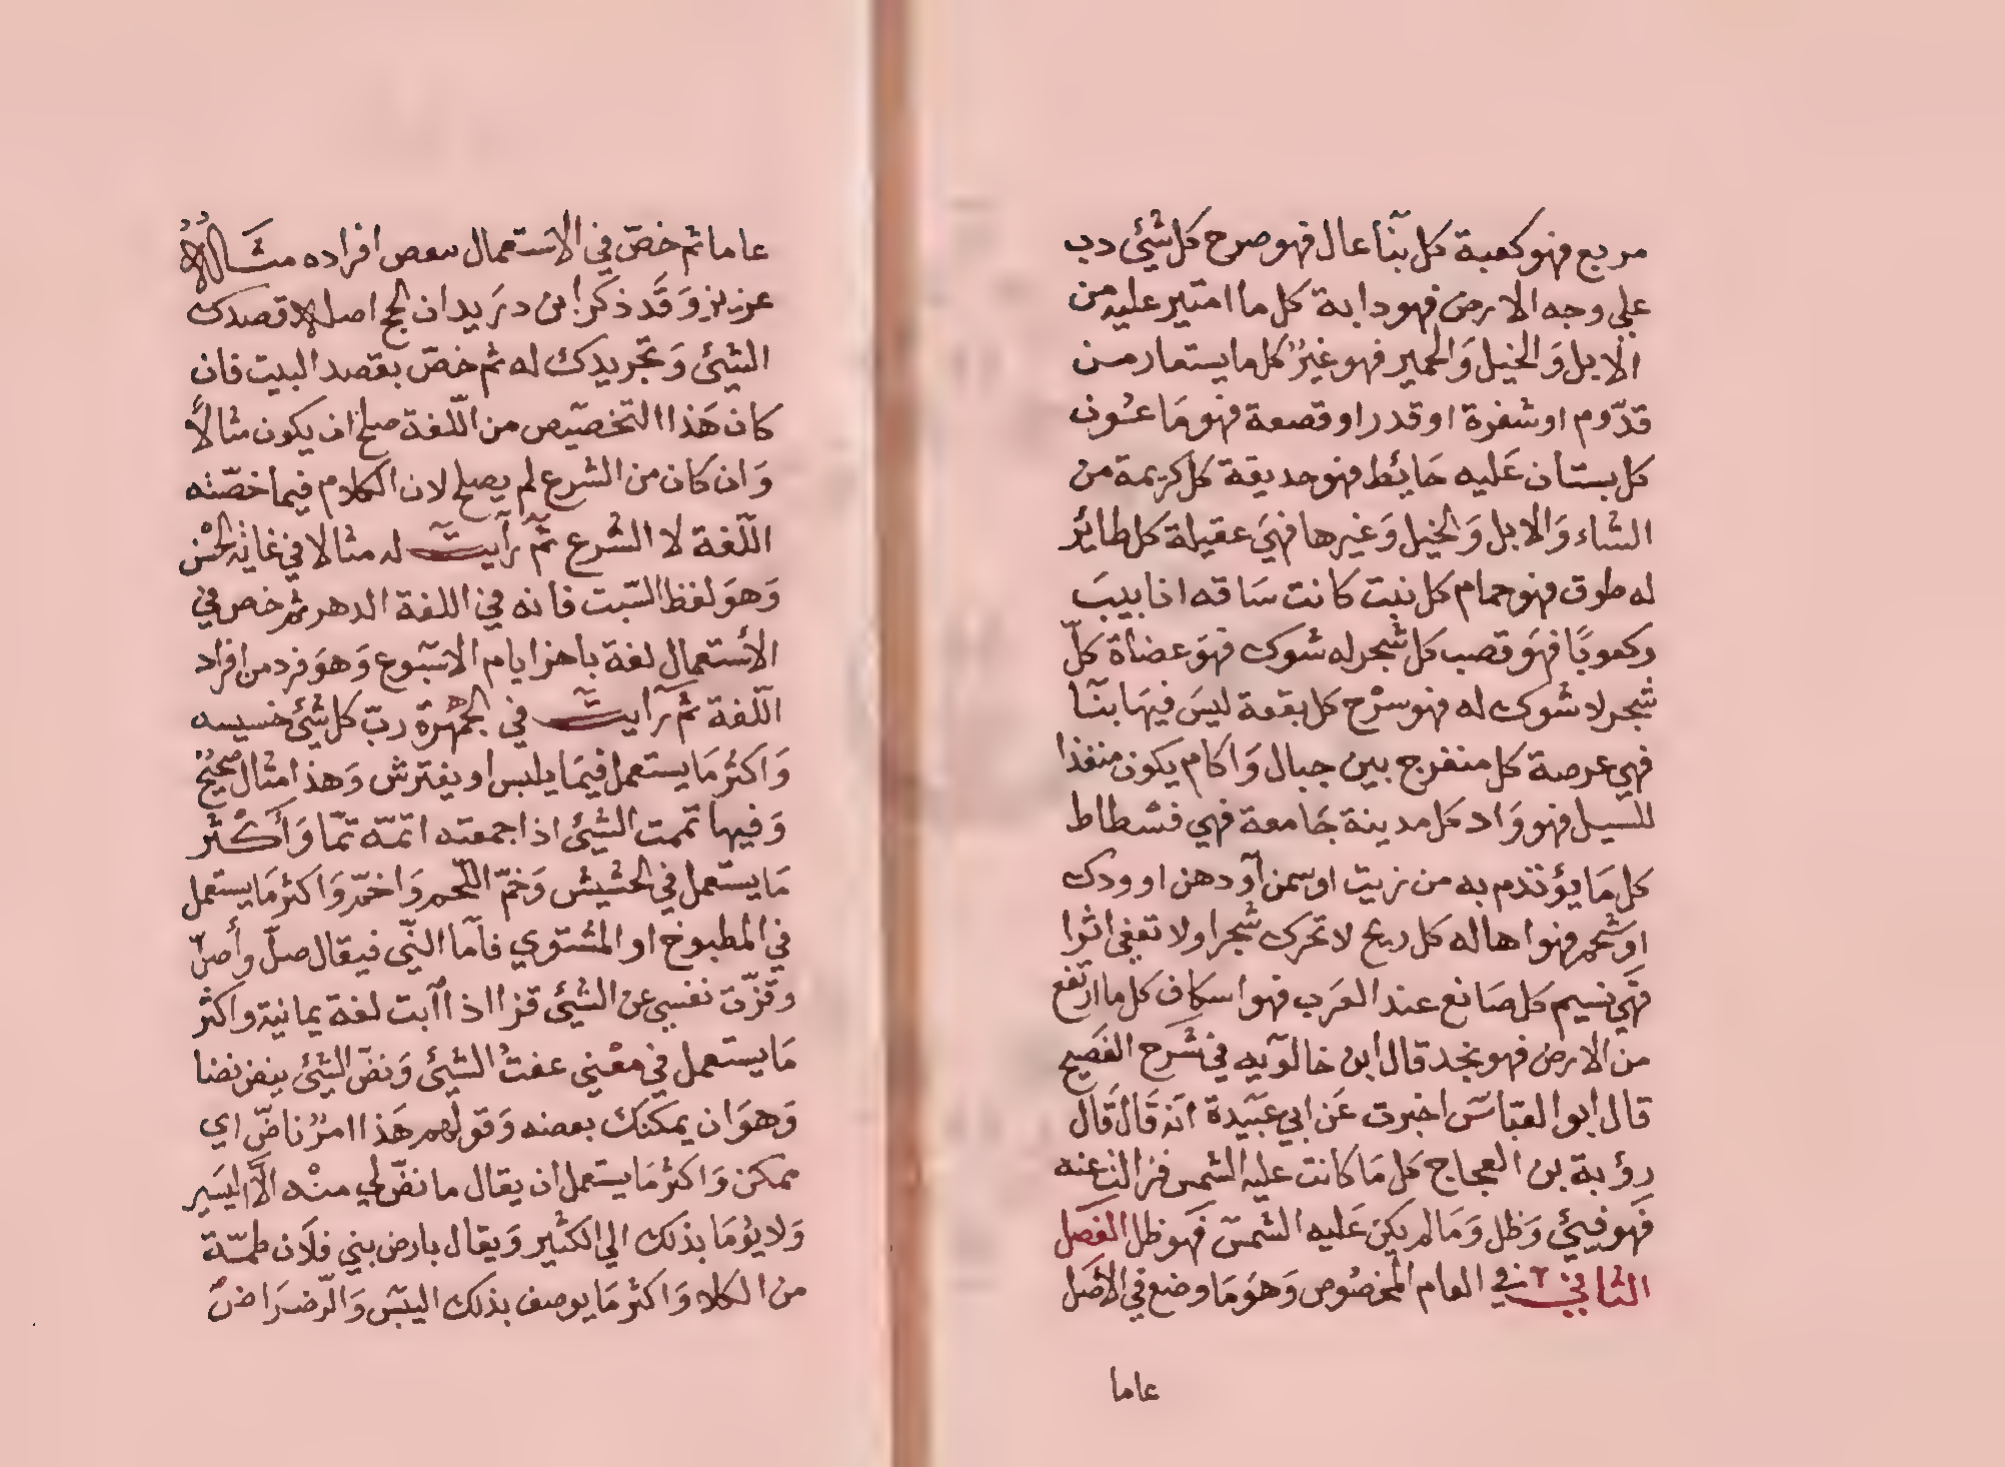 مربع فهو كعبة كل بنآ عال فهو صرح كل شيئ دب
علي وجه الارض فهو دابة كل ما امتير عليه من
الابل وَالخيل وَالحمير فهو عيرٌ كل ما يستعار من
قدّوم او شفرة او قدر او قصعة فهو مَاعون
كل بستان عَليه حَايُط فهو حديقة كل كريمة من
الشاء وَالابل وَالخيل وَغيرها فهيَ عقيلة كل طايُر
له طوق فهو حمام كل نبت كانت سَاقه انابيبَ
وكعوبًا فهَو قصب كل شجر له شوك فهوَ عضاة كلّ
شجر لا شوك له فهو سرْح كل بقعة ليسَ فيهَا بنآ
فهي عرصة كل منفرج بين جبال وَاكام يكون منفذا
للسيل فهو وَاد كل مدينة جَامعة فهي فسْطاط
كل مَا يؤتدم به من زيت او سمن آو دهن او ودك
او شحم فهو اهاله كل ريح لا تحرك شجرا ولا تعفي اثرا
فهَي نسيم كل صَانع عند العرَب فهو اسكاف كل ما ارتفع
من الارض فهو نجد قال ابن خالوَيه في شرَح الفصَيح
قال ابوا لعبّاسَ اخبرت عَن ابي عبَيدة انه قَال قَال
رؤبة بن العجاج كل مَا كانت عليه الشمس فزالت عنه
فَهو فييُ وَظل وَمَا لم يكن عَليه الشمسَ فهَو ظل الفصَل
الثاني ٢ في العام المخصُوص وَهوَ مَا وضع في الاصَل
عاما
عاما ثم خصّ في الاسَتعمال ببعض افراده مثَاله
عزيز وَقَد ذكرَ ابن درَيد ان الحج اصله قصدك
الشيئ وَتجريدك له ثم خصّ بقصد البيت فان
كان هَذا التخصيَص من اللّغة صلح ان يكون مثالاً
وَان كان من الشرع لم يصلح لان الكلام فيما خصّته
اللّغة لا الشرع ثمّ رآيت له مثالا في غاية الحسْن
وَهوَ لفظ السّبت فانه في اللغة الدهر ثم خص في
الاُستعمال لغة باحزا يام الاسبَوع وَهوَ فرد من افراد
اللّغة ثم رآيت في الجمْهرة ربّ كل شيئ خسيسه
وَاكثر مَا يستعمل فيمَا يلبس او يفترش وَهذا مثال صحيحٌ
وَفيها تممت الشيئ اذا جمعته اتمّه تمّا وَأكْثر
مَا يستَعمل في الحشيش وَخمّ اللّحم وَاخمّ وَاكثر مَا يستعمل
في المطبوخ او المشتوي فآما النّي فيقال صلّ وأصلّ
وقزّت نفسي عن الشيئ قزا اذا آبت لغة يمانية واكثر
مَا يستعمل في معْني عفتُ الشيئ وَنضّ الشيئ ينض نضا
وَهوَ ان يمكنَك بعضه وَقولَهم هَذا امرٌ ناضّ اي
ممكن وَاكثر مَا يستعمل ان يقال ما نضّ لي منْه الاّ اليسَير
وَلا يؤمَا بذلَك الي الكثير وَيقال بارض بني فلاَن طمّة
من الكلا وَاكثر مَا يوصف بذلك اليبَس وَالرّضرَاضَ